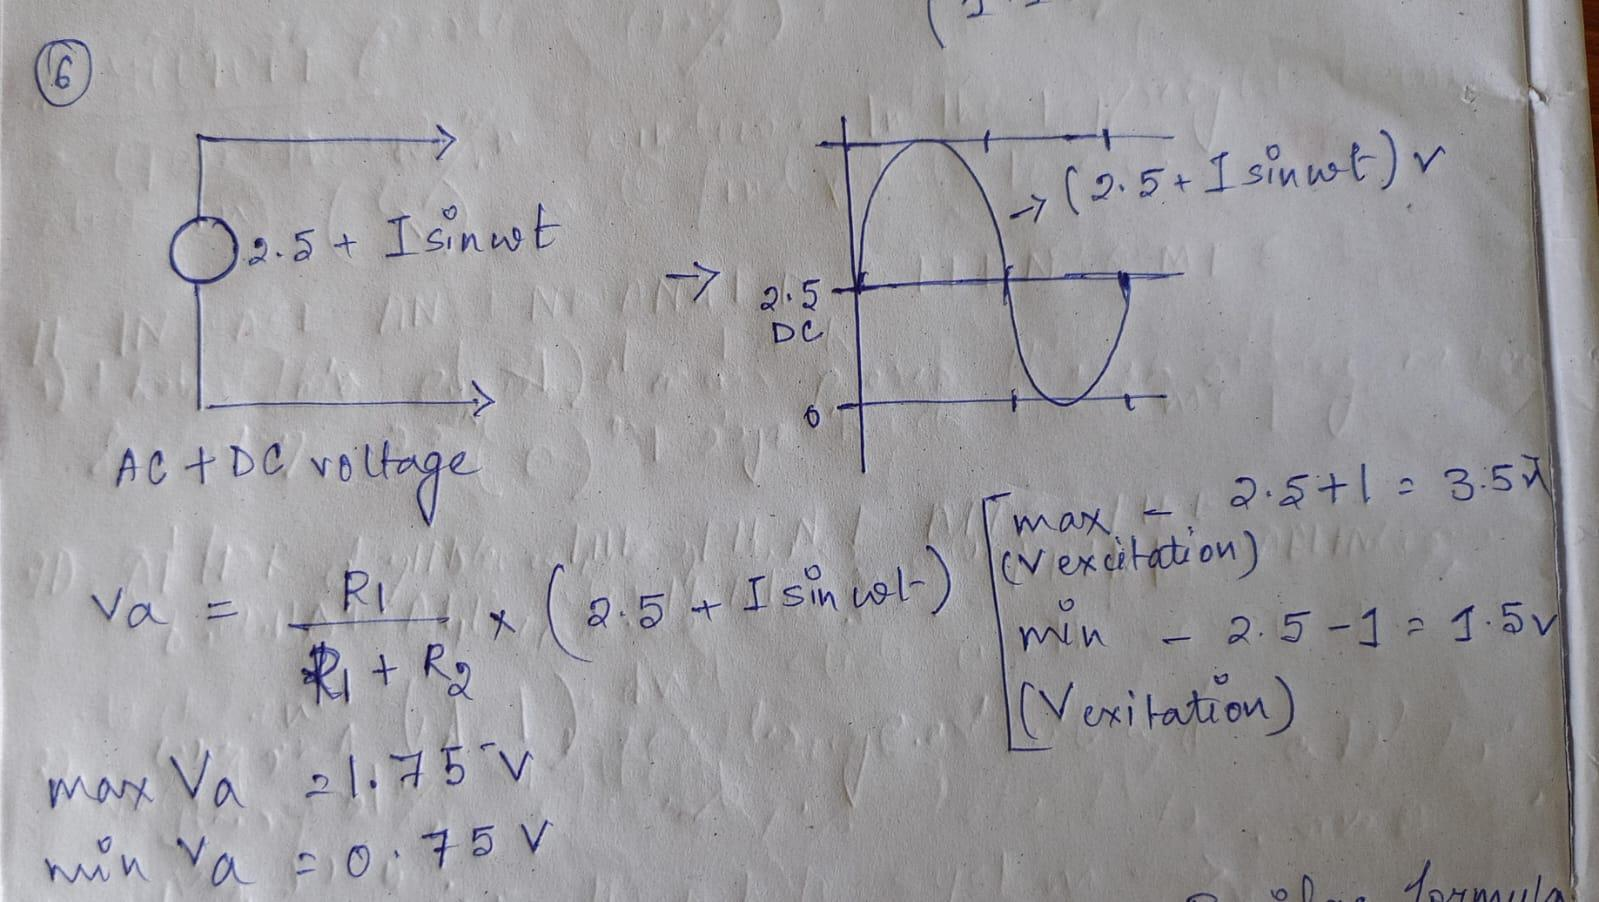 6
2.5 + I sin wt
→
→ (2.5 + I sin wt) v
2.5
DC
0
AC + DC voltage
Va = R1 / R1 + R2 × (2.5 + I sin wt)
max - 2.5+1 = 3.5v
(Vexcitation)
min - 2.5-1 = 1.5v
(Vexitation)
max Va = 1.75 V
min Va = 0.75 V
formula